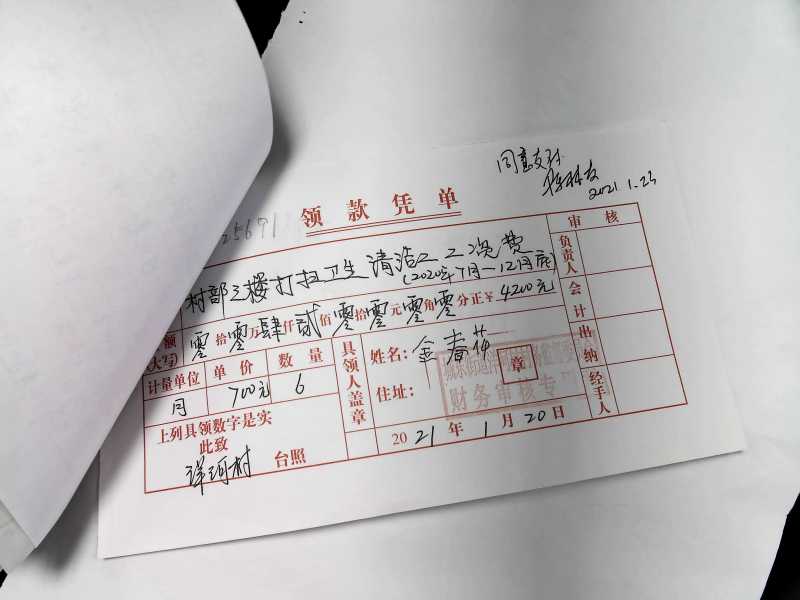 同意支付
2021.1.23
25671
领款凭单
审核
村部三楼打扫卫生清洁工工资费
(2020年7月一12月底)
负责人
额
(大写)
零拾零万肆仟贰佰零拾零元零角零分正¥4200元
会计
计量单位 单价 数量
月 700元 6
具领人盖章
姓名: 金春花
住址:
章
财务审核专
出纳
经手人
上列具领数字是实
此致
洋河村 台照
2021年1月20日